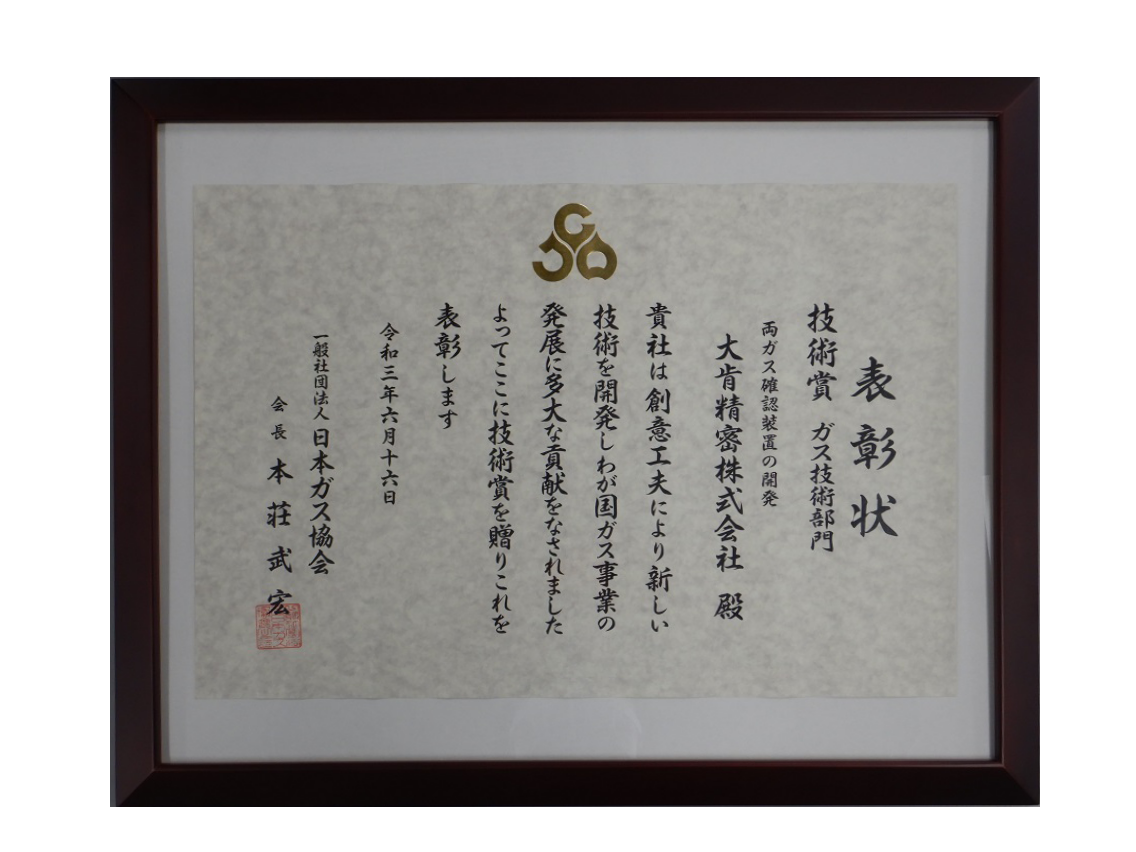 表彰状
技術賞 ガス技術部門
両ガス確認装置の開発
大肯精密株式会社 殿
貴社は創意工夫により新しい
技術を開発しわが国ガス事業の
発展に多大な貢献をなされました
よってここに技術賞を贈りこれを
表彰します
令和三年六月十六日
一般社団法人 日本ガス協会
会長 本荘武宏